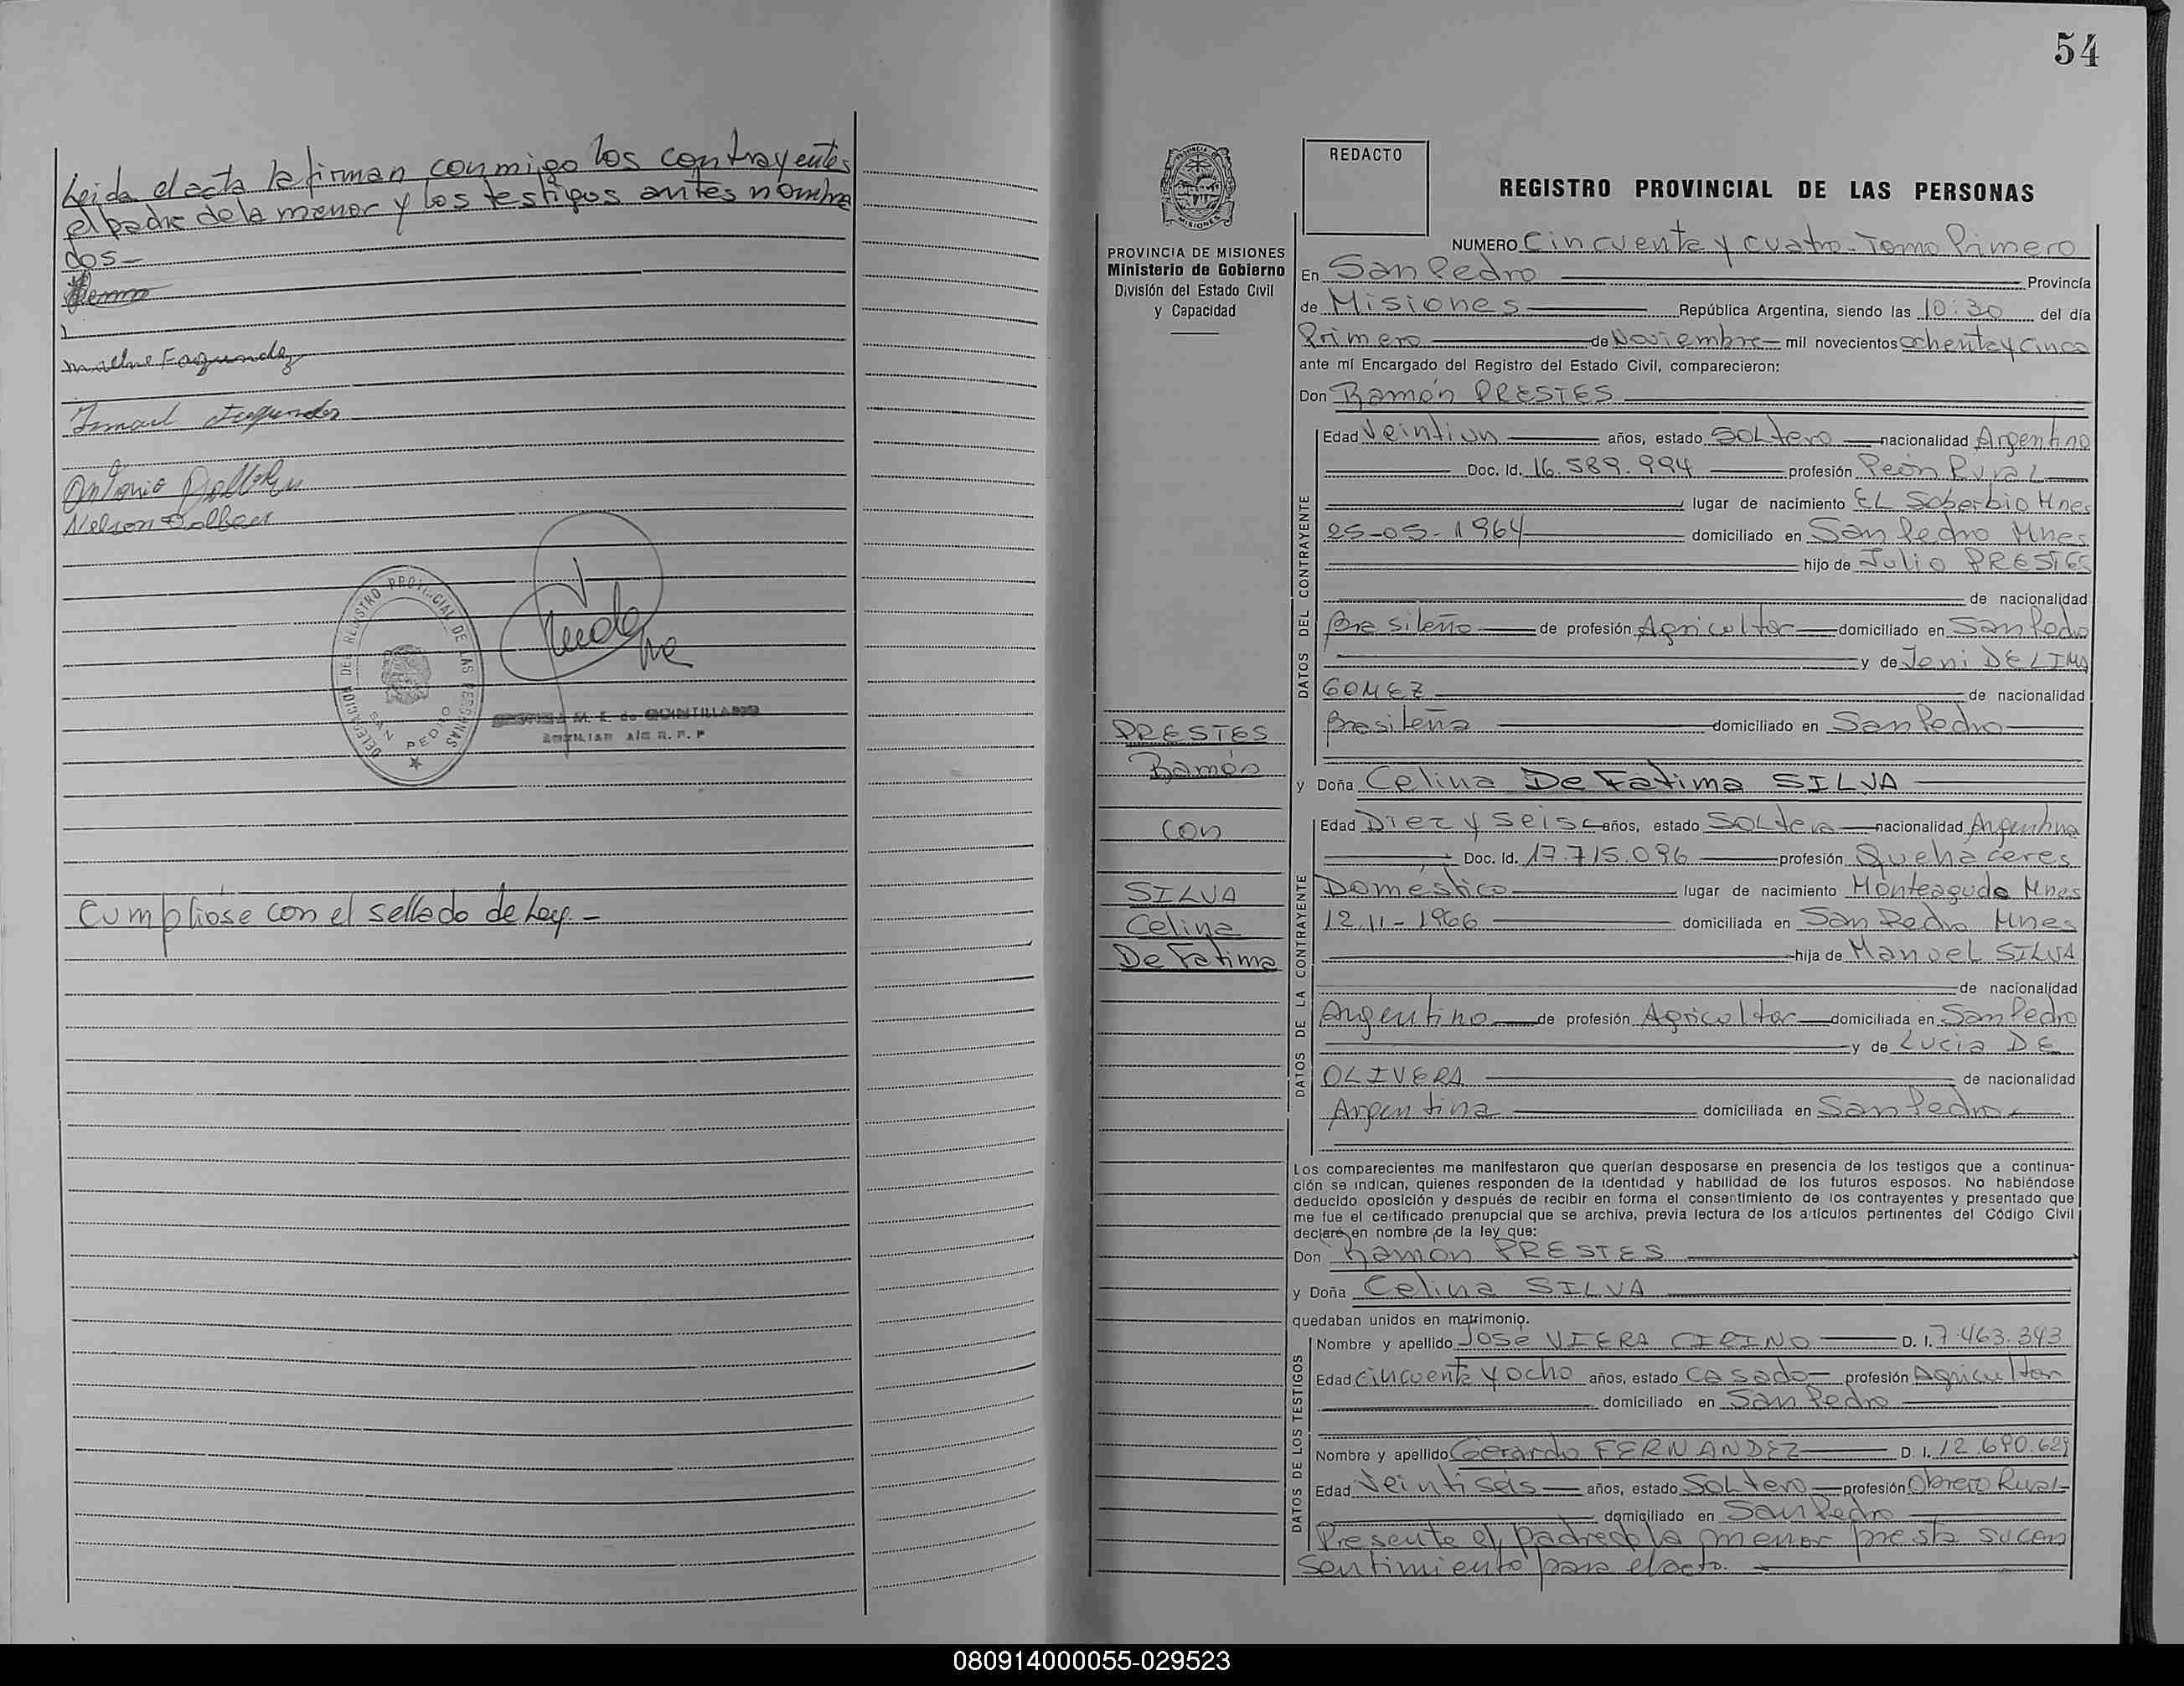 Leida el acta la firman conmigo los contrayentes
el padre de la menor y los testigos antes nombra
dos-
Ismael
Antonio
Nelson
DELEGACION DEL REGISTRO PROVINCIAL DE LAS PERSONAS
SAN PEDRO
M. E. de QUINTILLANO
AUXILIAR A/C R. P. P
Cumplióse con el sellado de Ley.-
54
PROVINCIA DE MISIONES
Ministerio de Gobierno
División del Estado Civil
y Capacidad
PRESTES
Ramón
con
SILVA
Celina
De Fatima
REDACTO
REGISTRO PROVINCIAL DE LAS PERSONAS
NUMERO Cincuenta y cuatro - Tomo Primero
En San Pedro Provincia
de Misiones República Argentina, siendo las 10:30 del día
Primero de Noviembre mil novecientos ochenta y cinco
ante mí Encargado del Registro del Estado Civil, comparecieron:
Don Ramón PRESTES
DATOS DEL CONTRAYENTE
Edad Veintiun años, estado Soltero nacionalidad Argentino
Doc. Id. 16.589.994 profesión Peón Rural
lugar de nacimiento EL Soberbio Mnes
25-05-1964 domiciliado en San Pedro Mnes
hijo de Julio PRESTES
de nacionalidad
Brasileño de profesión Agricultor domiciliado en San Pedro
y de Jeni DE LIMA
GOMEZ de nacionalidad
Brasileña domiciliado en San Pedro
y Doña Celina De Fatima SILVA
DATOS DE LA CONTRAYENTE
Edad Diez y Seis años, estado Soltera nacionalidad Argentina
Doc. Id. 17.715.096 profesión Quehaceres
Doméstico lugar de nacimiento Monteagudo Mnes
12.11-1966 domiciliada en San Pedro Mnes
hija de Manoel SILVA
de nacionalidad
Argentino de profesión Agricultor domiciliada en San Pedro
y de Lucia DE
OLIVERA de nacionalidad
Argentina domiciliada en San Pedro
Los comparecientes me manifestaron que querían desposarse en presencia de los testigos que a continua-
ción se indican, quienes responden de la identidad y habilidad de los futuros esposos. No habiéndose
deducido oposición y después de recibir en forma el consentimiento de los contrayentes y presentado que
me fue el certificado prenupcial que se archiva, previa lectura de los artículos pertinentes del Código Civil
declaré en nombre de la ley que:
Don Ramón PRESTES
y Doña Celina SILVA
quedaban unidos en matrimonio.
DATOS DE LOS TESTIGOS
Nombre y apellido José VIERA CIRINO D. I. 7.463.343
Edad Cincuenta y ocho años, estado Casado profesión Agricultor
domiciliado en San Pedro
Nombre y apellido Gerardo FERNANDEZ D. I. 12.690.629
Edad Veintiseis años, estado Soltero profesión Obrero Rural
domiciliado en San Pedro
Presente el padre de la menor presta su con
sentimiento para el acto.
080914000055-029523